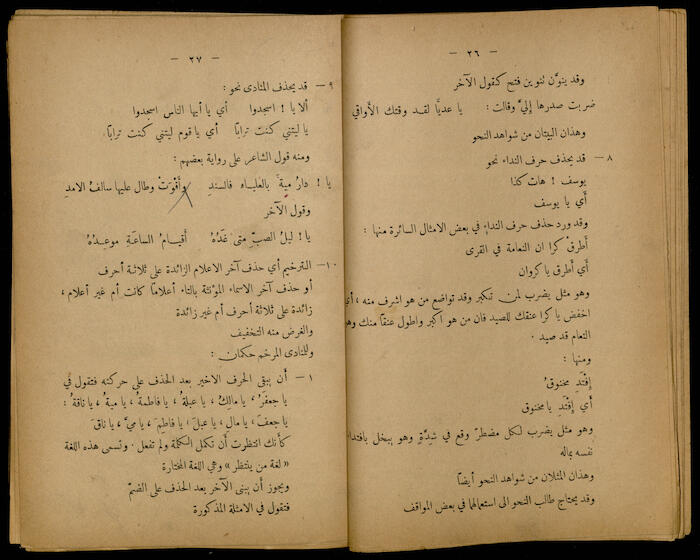 — ٢٦ —
وقد ينوَّن تنوين فتح كقول الآخر
ضربت صدرها إليَّ وقالت : يا عديًّا لقد وقتك الأواقي
وهذان البيتان من شواهد النحو
٨ — قد يحذف حرف النداء نحو
يوسف ! هات كذا
أي يا يوسف
وقد ورد حذف حرف النداء في بعض الامثال السائرة منها :
أطرقْ كرا ان النعامة في القرى
أي أطرق يا كروان
وهو مثل يضرب لمن تكبر وقد تواضع من هو اشرف منه ، أي
اخفض يا كرا عنقك للصيد فان من هو اكبر واطول عنقًا منك وهو
النعام قد صيد .
ومنها :
إِفْتَدِ مخنوقُ
أي إِفْتَدِ يا مخنوق
وهو مثل يضرب لكل مضطرّ وقع في شدِّة وهو يبخل بافتداء
نفسه بماله
وهذان المثلان من شواهد النحو أيضًا
وقد يحتاج طالب النحو الى استعمالهما في بعض المواقف
— ٢٧ —
٩ — قد يحذف المنادى نحو :
ألا يا ! اسجدوا أي يا أيها الناس اسجدوا
يا ليتني كنت ترابًا أي يا قوم ليتني كنت ترابًا
ومنه قول الشاعر على رواية بعضهم :
يا ! دارُ ميةَ بالعلياء فالسندِ وأَقْوَتْ وطال عليها سالفُ الامدِ
وقول الآخر
يا ! ليلُ الصبّ متى غَدُهُ أقيامُ الساعَةِ موعِدُهُ
١٠ — الترخيم أي حذف آخر الاعلام الزائدة على ثلاثة أحرف
أو حذف آخر الاسماء المؤنثة بالتاء أعلامًا كانت أم غير أعلام ،
زائدة على ثلاثة أحرف أم غير زائدة
والغرض منه التخفيف
وللمنادى المرخم حكمان :
١ — أن يبقى الحرف الاخير بعد الحذف على حركته فتقول في
يا جعفرُ ، يا مالِكُ ، يا عبلةُ ، يا فاطمةُ ، يا ميةُ ، يا ناقةُ :
يا جعفَ ، يا مالِ ، يا عبلَ ، يا فاطِمَ ، يا ميَّ ، يا ناقَ
كأنك انتظرت أن تكمل الكلمة ولم تفعل . وتسمى هذه اللغة
« لغة من ينتظر » وهي اللغة المختارة
ويجوز أن يبنى الآخر بعد الحذف على الضمّ
فتقول في الامثلة المذكورة